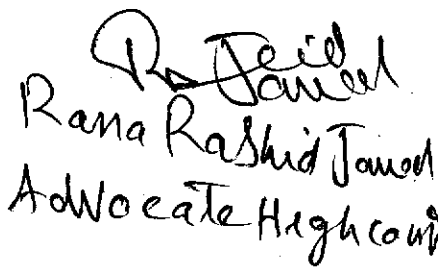 Rana Rashid Javed
Advocate High Cour